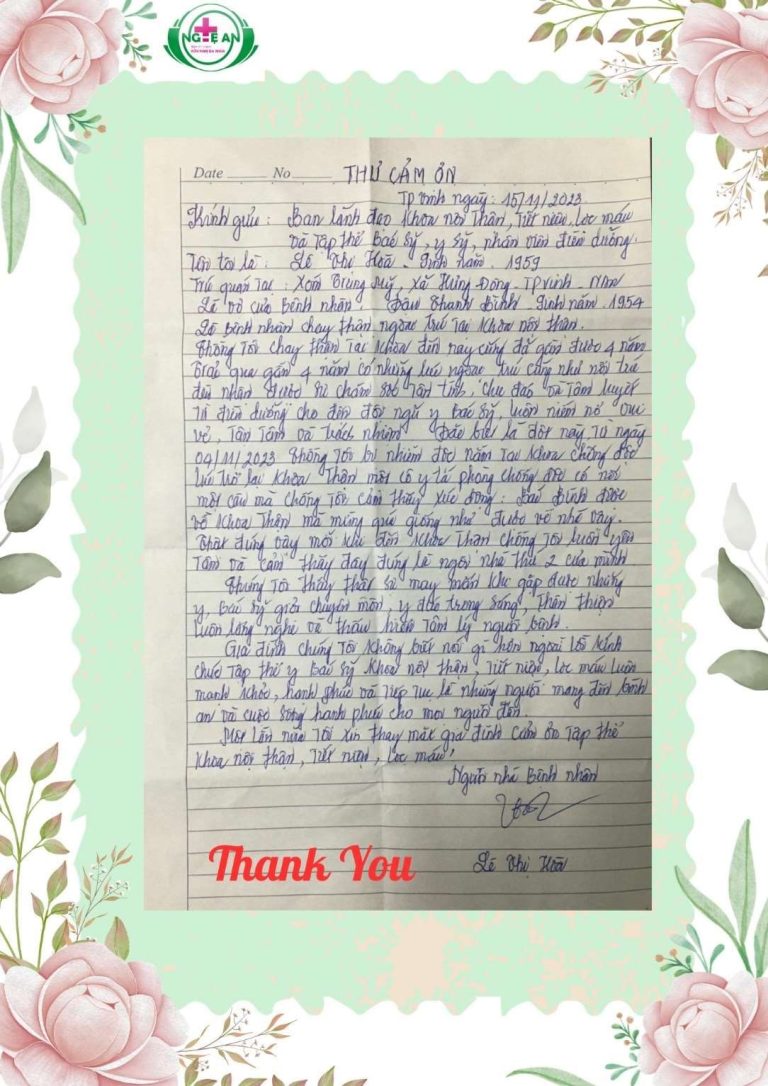 NGHỆ AN
Date No THƯ CẢM ƠN
TP vinh ngày: 15/11/2023
Kính gửi: Ban lãnh đạo khoa nội Thận, Tiết niệu, Lọc máu
và Tập thể Bác sỹ, y sỹ, nhân viên điều dưỡng.
Tên tôi là: Lê Thị Hoà - Sinh năm 1959
Trú quán tại: Xóm Trung Mỹ, xã Hưng Đông - TP vinh - N/An
Là vợ của bệnh nhân Đậu Thanh Bình - Sinh năm 1954
Là bệnh nhân chạy thận ngoại trú tại khoa nội thận.
Chồng tôi chạy thận tại khoa đến nay cũng đã gần được 4 năm
Trải qua gần 4 năm có những lúc ngoại trú cũng như nội trú
đều nhận được sự chăm sóc tận tình, chu đáo và tâm huyết
từ điều dưỡng cho đến đội ngũ y Bác sỹ, luôn niềm nở vui
vẻ, tận tâm và trách nhiệm. Đặc biệt là đợt này, từ ngày
04/11/2023 chồng tôi bị nhiễm độc nằm tại khoa chống độc
lúc trở lại khoa Thận một cô y tá phòng chống độc có nói
một câu mà chồng tôi cảm thấy xúc động: Bác Bình được
về khoa Thận mà mừng quá giống như được về nhà vậy.
Thật đúng vậy mỗi khi đến khoa Thận chồng tôi luôn yên
tâm và cảm thấy đây đúng là ngôi nhà thứ 2 của mình
Chúng tôi thấy thật sự may mắn khi gặp được những
y, Bác sỹ giỏi chuyên môn, y đức trong sáng, thân thiện
luôn lắng nghe và thấu hiểu tâm lý người bệnh.
Gia đình chúng tôi không biết nói gì hơn ngoài lời kính
chúc tập thể y Bác sỹ khoa nội thận, tiết niệu, lọc máu luôn
mạnh khỏe, hạnh phúc và tiếp tục là những người mang đến bình
an và cuộc sống hạnh phúc cho mọi người đến.
Một lần nữa tôi xin thay mặt gia đình cảm ơn tập thể
khoa nội thận, tiết niệu, lọc máu!
Người nhà Bệnh nhân
Thank You
Lê Thị Hoà